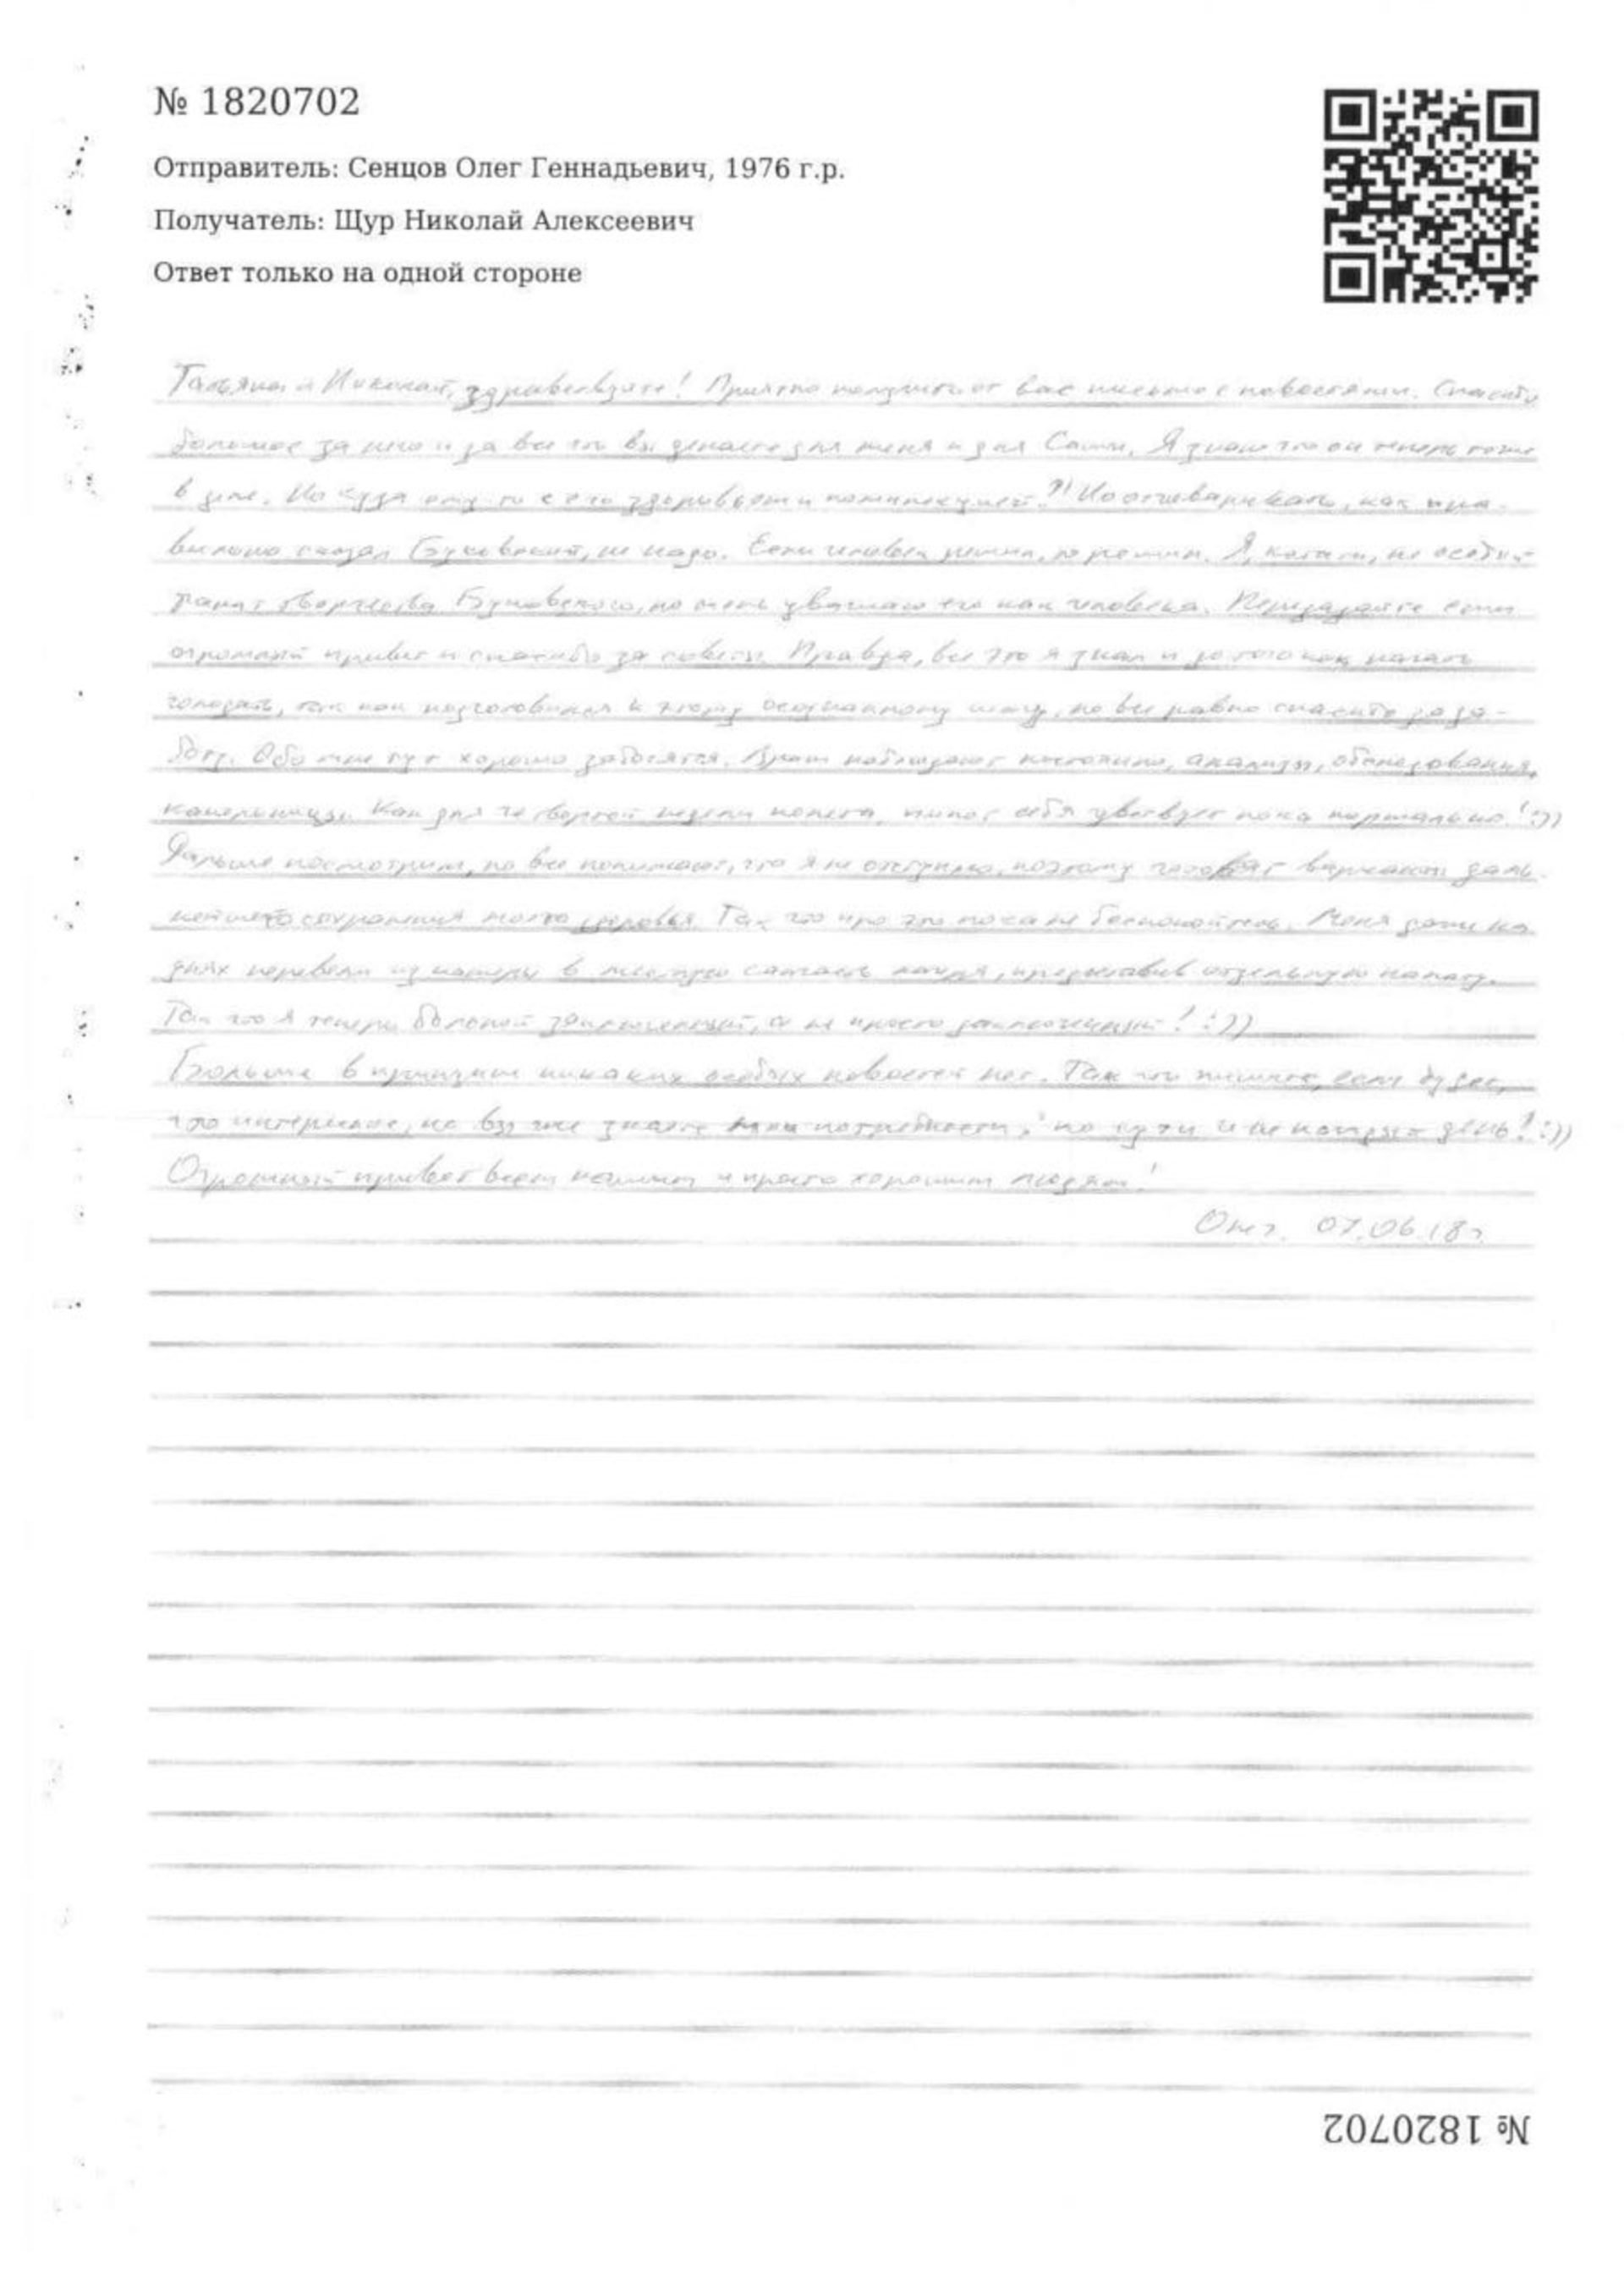 № 1820702
Отправитель: Сенцов Олег Геннадьевич, 1976 г.р.
Получатель: Щур Николай Алексеевич
Ответ только на одной стороне
Татьяна и Николай, здравствуйте! Приятно получить от вас письмо с новостями. Спасибо
большое за него и за все что вы делаете для меня и для Саши. Я знаю что он теперь тоже
в деле. Но куда ему то с его здоровьем и комплекцией?! Но отговаривать, как пра-
вильно сказал Буковский, не надо. Если человек решил, то решил. Я, кстати, не особый
фанат творчества Буковского, но очень уважаю его как человека. Передадите если
огромный привет и спасибо за советы. Правда, все это я знал и до того как начать
голодать, так как подготовился к этому осознанному шагу, но все равно спасибо за за-
боту. Обо мне тут хорошо заботятся. Врачи наблюдают постоянно, анализы, обследования,
капельницы. Как для четвертой недели себя чувствует пока нормально! :))
Дальше посмотрим, но все понимают, что я не отступлю, поэтому готовят варианты даль-
нейшего сохранения моего здоровья. Так что про это пока не беспокойтесь. Меня даже на
днях перевели из камеры в местную санчасть лагеря, предоставив отдельную палату.
Так что я теперь больной заключенный, а не просто заключенный! :))
Больше в принципе никаких особых новостей нет. Так что пишите, если будет,
что интересное, но вы же знаете мои потребности, по сути и не каждый день! :))
Огромный привет всем нашим и просто хорошим людям!
Олег. 07.06.18г.
№ 1820702